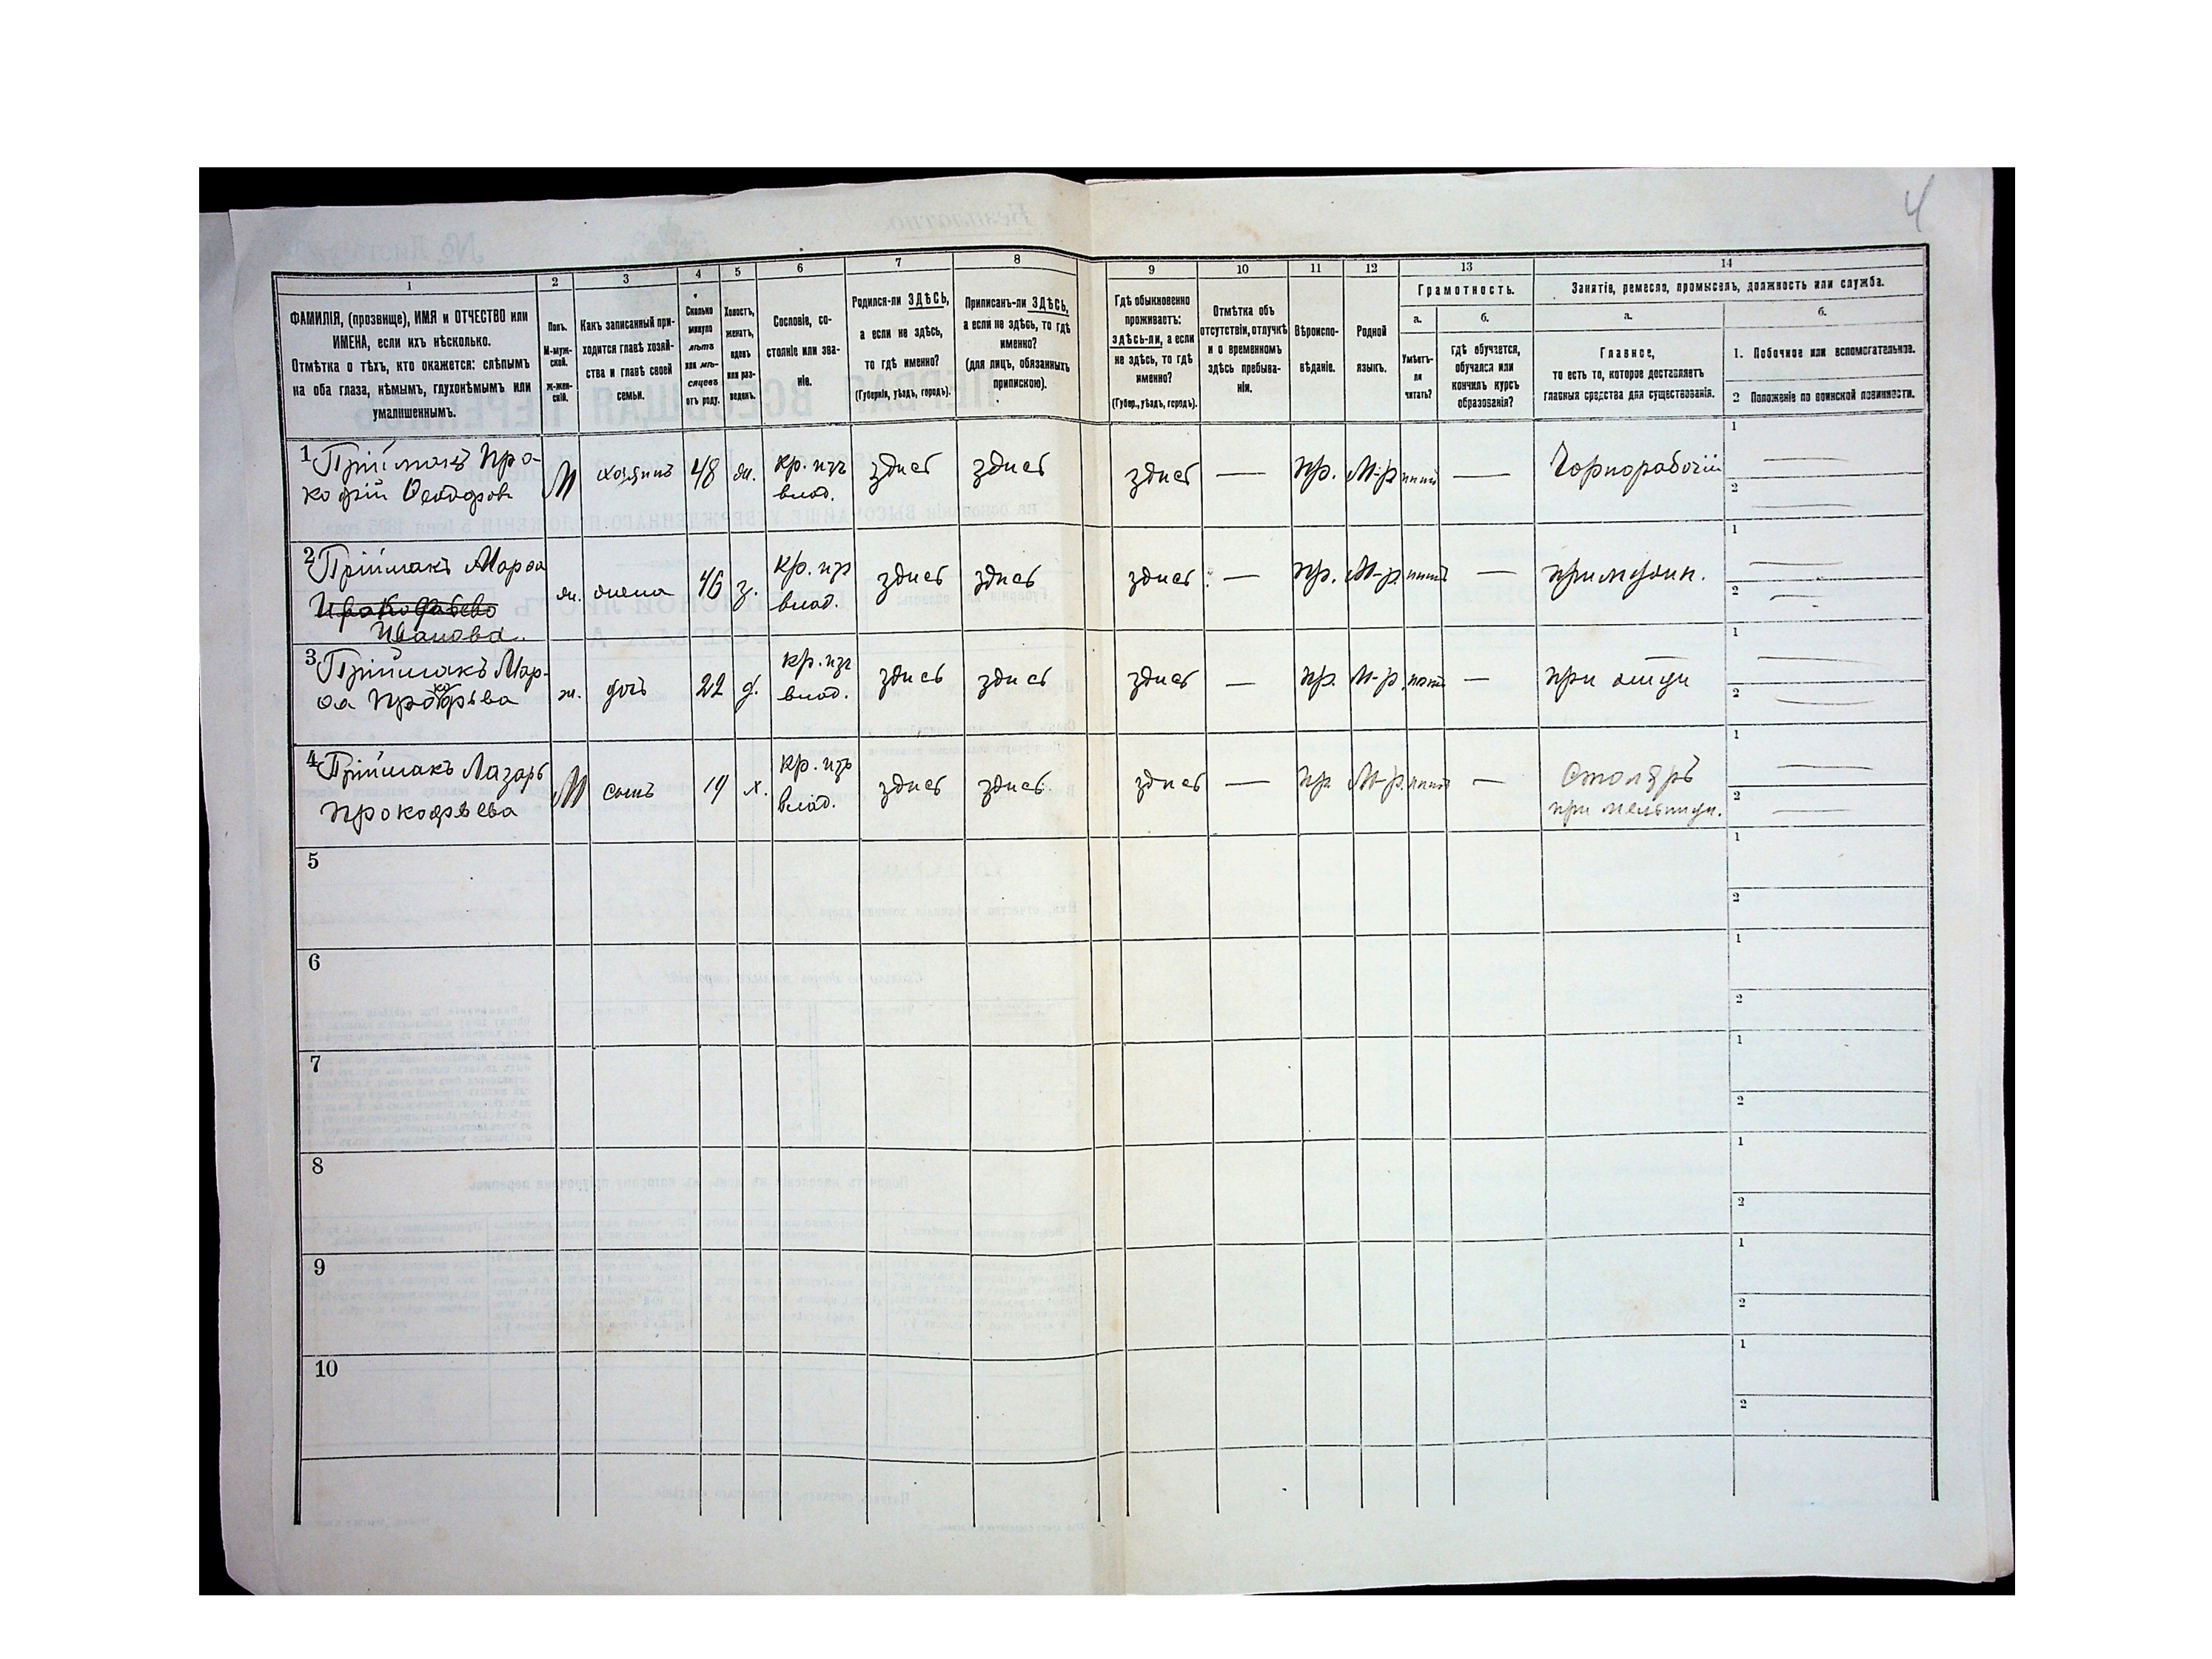 4
1 2 3 4 5 6 7 8 9 10 11 12 13 14
ФАМИЛІЯ, (прозвище), ИМЯ и ОТЧЕСТВО или
ИМЕНА, если ихъ нѣсколько.
Отмѣтка о тѣхъ, кто окажется: слѣпымъ
на оба глаза, нѣмымъ, глухонѣмымъ или
умалишеннымъ.
Полъ.
М-муж-
ской.
Ж-жен-
скій.
Какъ записанный при-
ходится главѣ хозяй-
ства и главѣ своей
семьи.
Сколько
минуло
лѣтъ
или мѣ-
сяцевъ
отъ роду.
Холостъ,
женатъ,
вдовъ
или раз-
веденъ.
Сословіе, со-
стояніе или зва-
ніе.
Родился-ли ЗДѢСЬ,
а если не здѣсь,
то гдѣ именно?
(Губернія, уѣздъ, городъ).
Приписанъ-ли ЗДѢСЬ,
а если не здѣсь, то гдѣ
именно?
(для лицъ, обязанныхъ
припискою).
Гдѣ обыкновенно
проживаетъ:
здѣсь-ли, а если
не здѣсь, то гдѣ
именно?
(Губер., уѣздъ, городъ).
Отмѣтка объ
отсутствіи, отлучкѣ
и о временномъ
здѣсь пребыва-
ніи.
Вѣроиспо-
вѣданіе.
Родной
языкъ.
Грамотность.
а.
Умѣетъ-
ли
читать?
б.
гдѣ обучается,
обучался или
кончилъ курсъ
образованія?
Занятія, ремесло, промыселъ, должность или служба.
а.
Главное,
то есть то, которое доставляетъ
главныя средства для существованія.
б.
1. Побочное или вспомогательное.
2 Положеніе по воинской повинности.
1 Прiймакъ Про-
кофiй Ѳеодоров
М хозяинъ 48 ж. кр. изъ
влад. здись здись здись — пр. М-р нит — Чорнорабочiй
1
2
2 Прiймакъ Марѳа
Иванова.
ж. жена 46 з. кр. изъ
влад. здись здись здись — пр. М-р нит —
1
2
3 Прiймакъ Мар-
ѳа Прокофьева
ж. дочь 22 д. кр. изъ
влад. здись здись здись — пр. М-р. нит — при отци
1
2
4 Прiймакъ Лазарь
Прокофьева
М сынъ 19 х. кр. изъ
влад. здись здись здись — пр М-р. нит — Столяръ
при мельници.
1
2
5 1
2
6 1
2
7 1
2
8 1
2
9 1
2
10 1
2